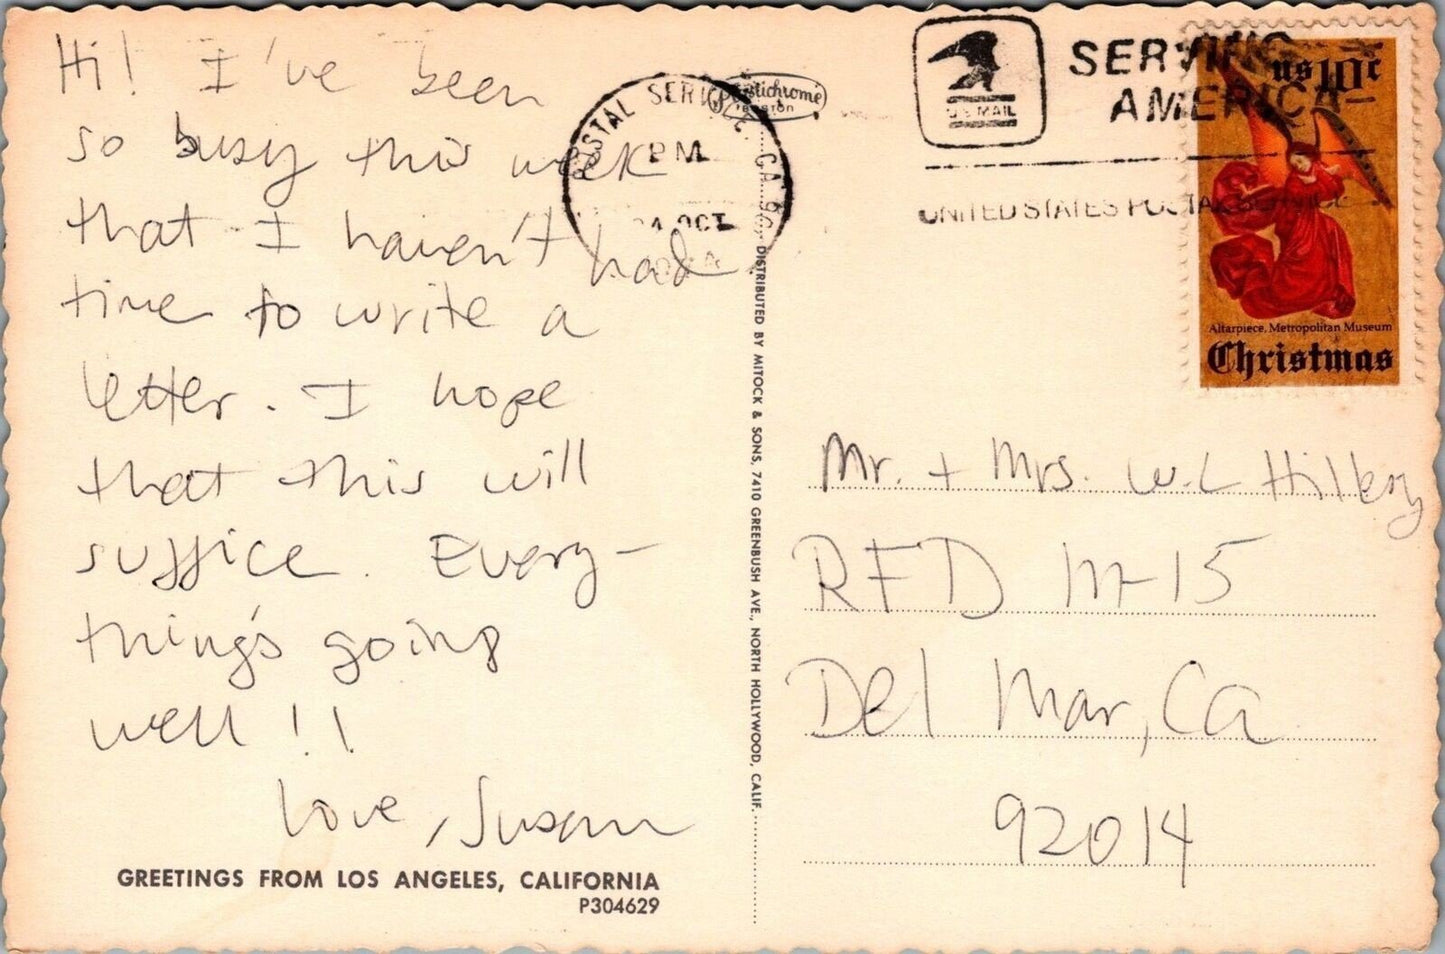 Hi! I've been
so busy this week
that I haven't had
time to write a
letter. I hope
that this will
suffice. Every-
thing's going
well!!
Love, Susan
GREETINGS FROM LOS ANGELES, CALIFORNIA
P304629
POSTAL SERVICE, CA
PM
OCT
DISTRIBUTED BY MITOCK & SONS, 7410 GREENBUSH AVE., NORTH HOLLYWOOD, CALIF.
U.S. MAIL
SERVING
AMERICA
UNITED STATES POSTAL SERVICE
US 10c
Altarpiece, Metropolitan Museum
Christmas
Mr. + Mrs. W.L Hillery
RFD M-15
Del Mar, Ca
92014